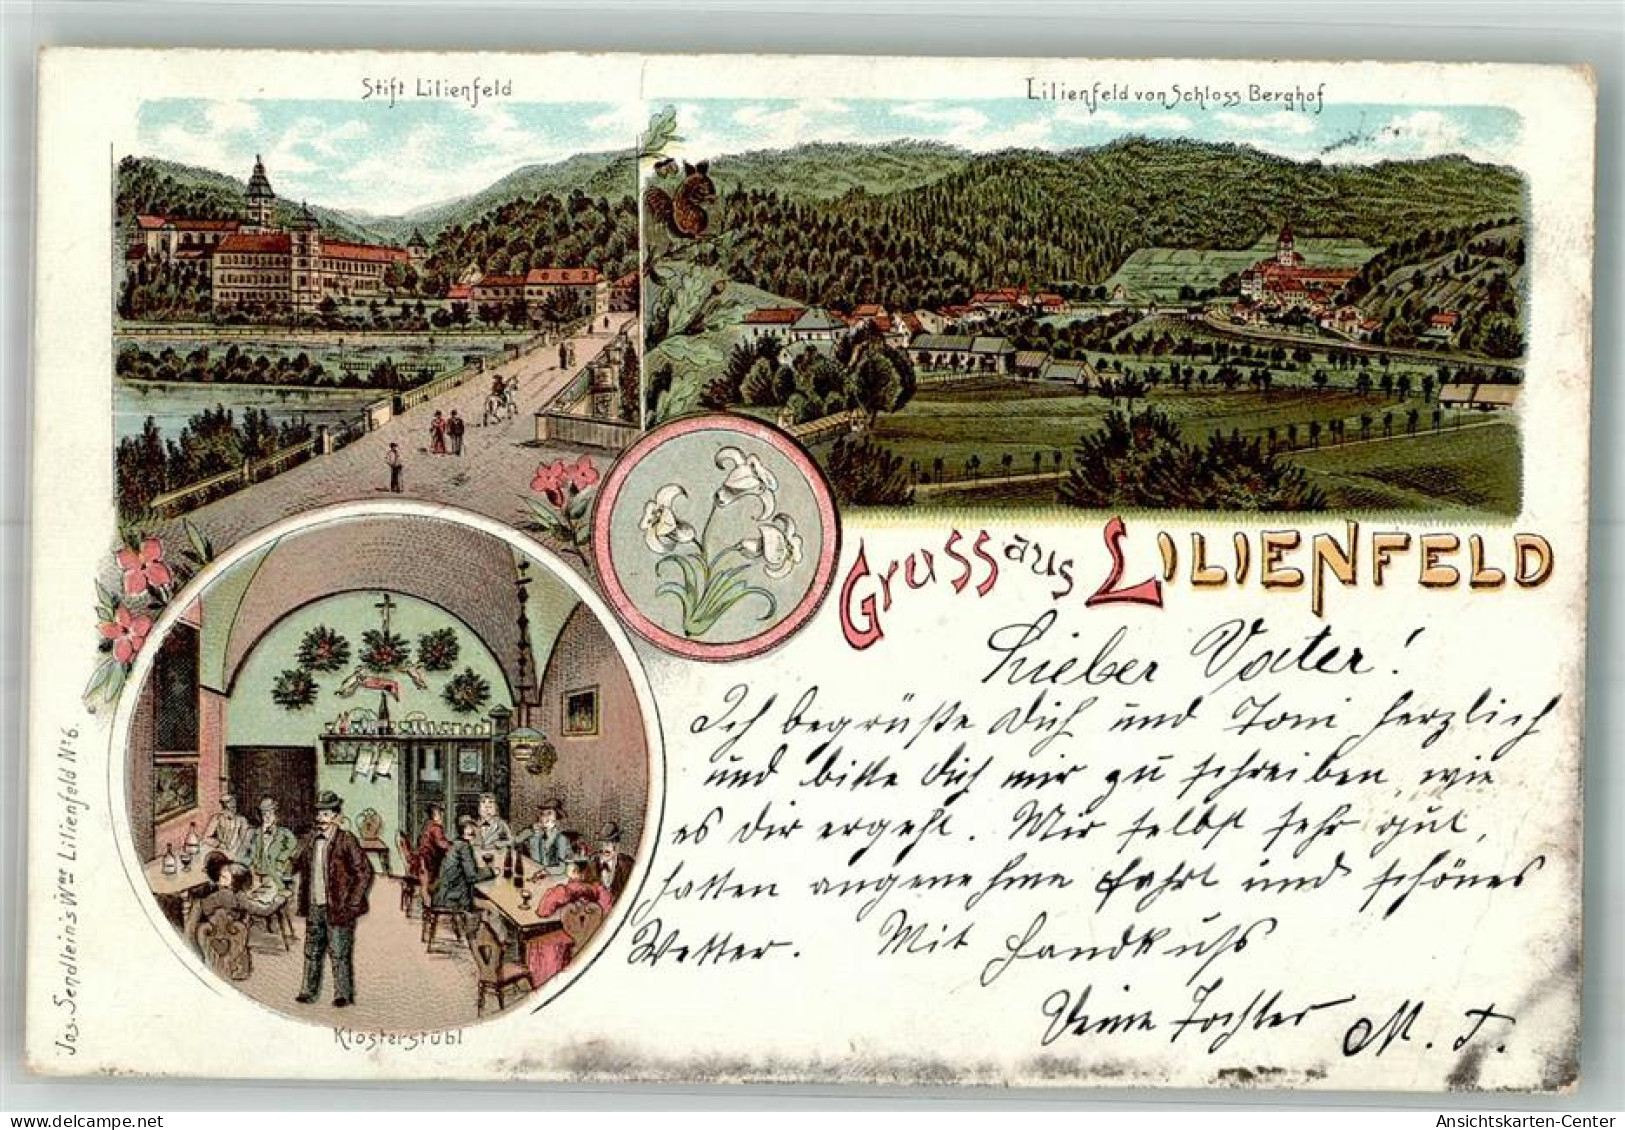 Stift Lilienfeld
Lilienfeld von Schloss Berghof
Gruss aus LILIENFELD
Lieber Vater!
Ich begrüße dich und Toni herzlich
und bitte dich mir zu schreiben, wie
es dir ergeht. Mir selbst sehr gut,
hatten angenehme Fahrt und schönes
Wetter. Mit Handkuß
Deine Tochter M. T.
Klosterstübl
Jos. Sendlein's Wwe Lilienfeld No 6.
Ansichtskarten-Center